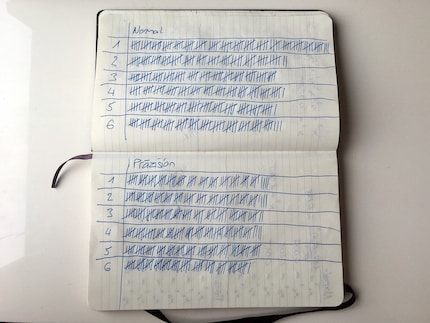 Normal
1
2
3
4
5
6
Präzision
1
2
3
4
5
6